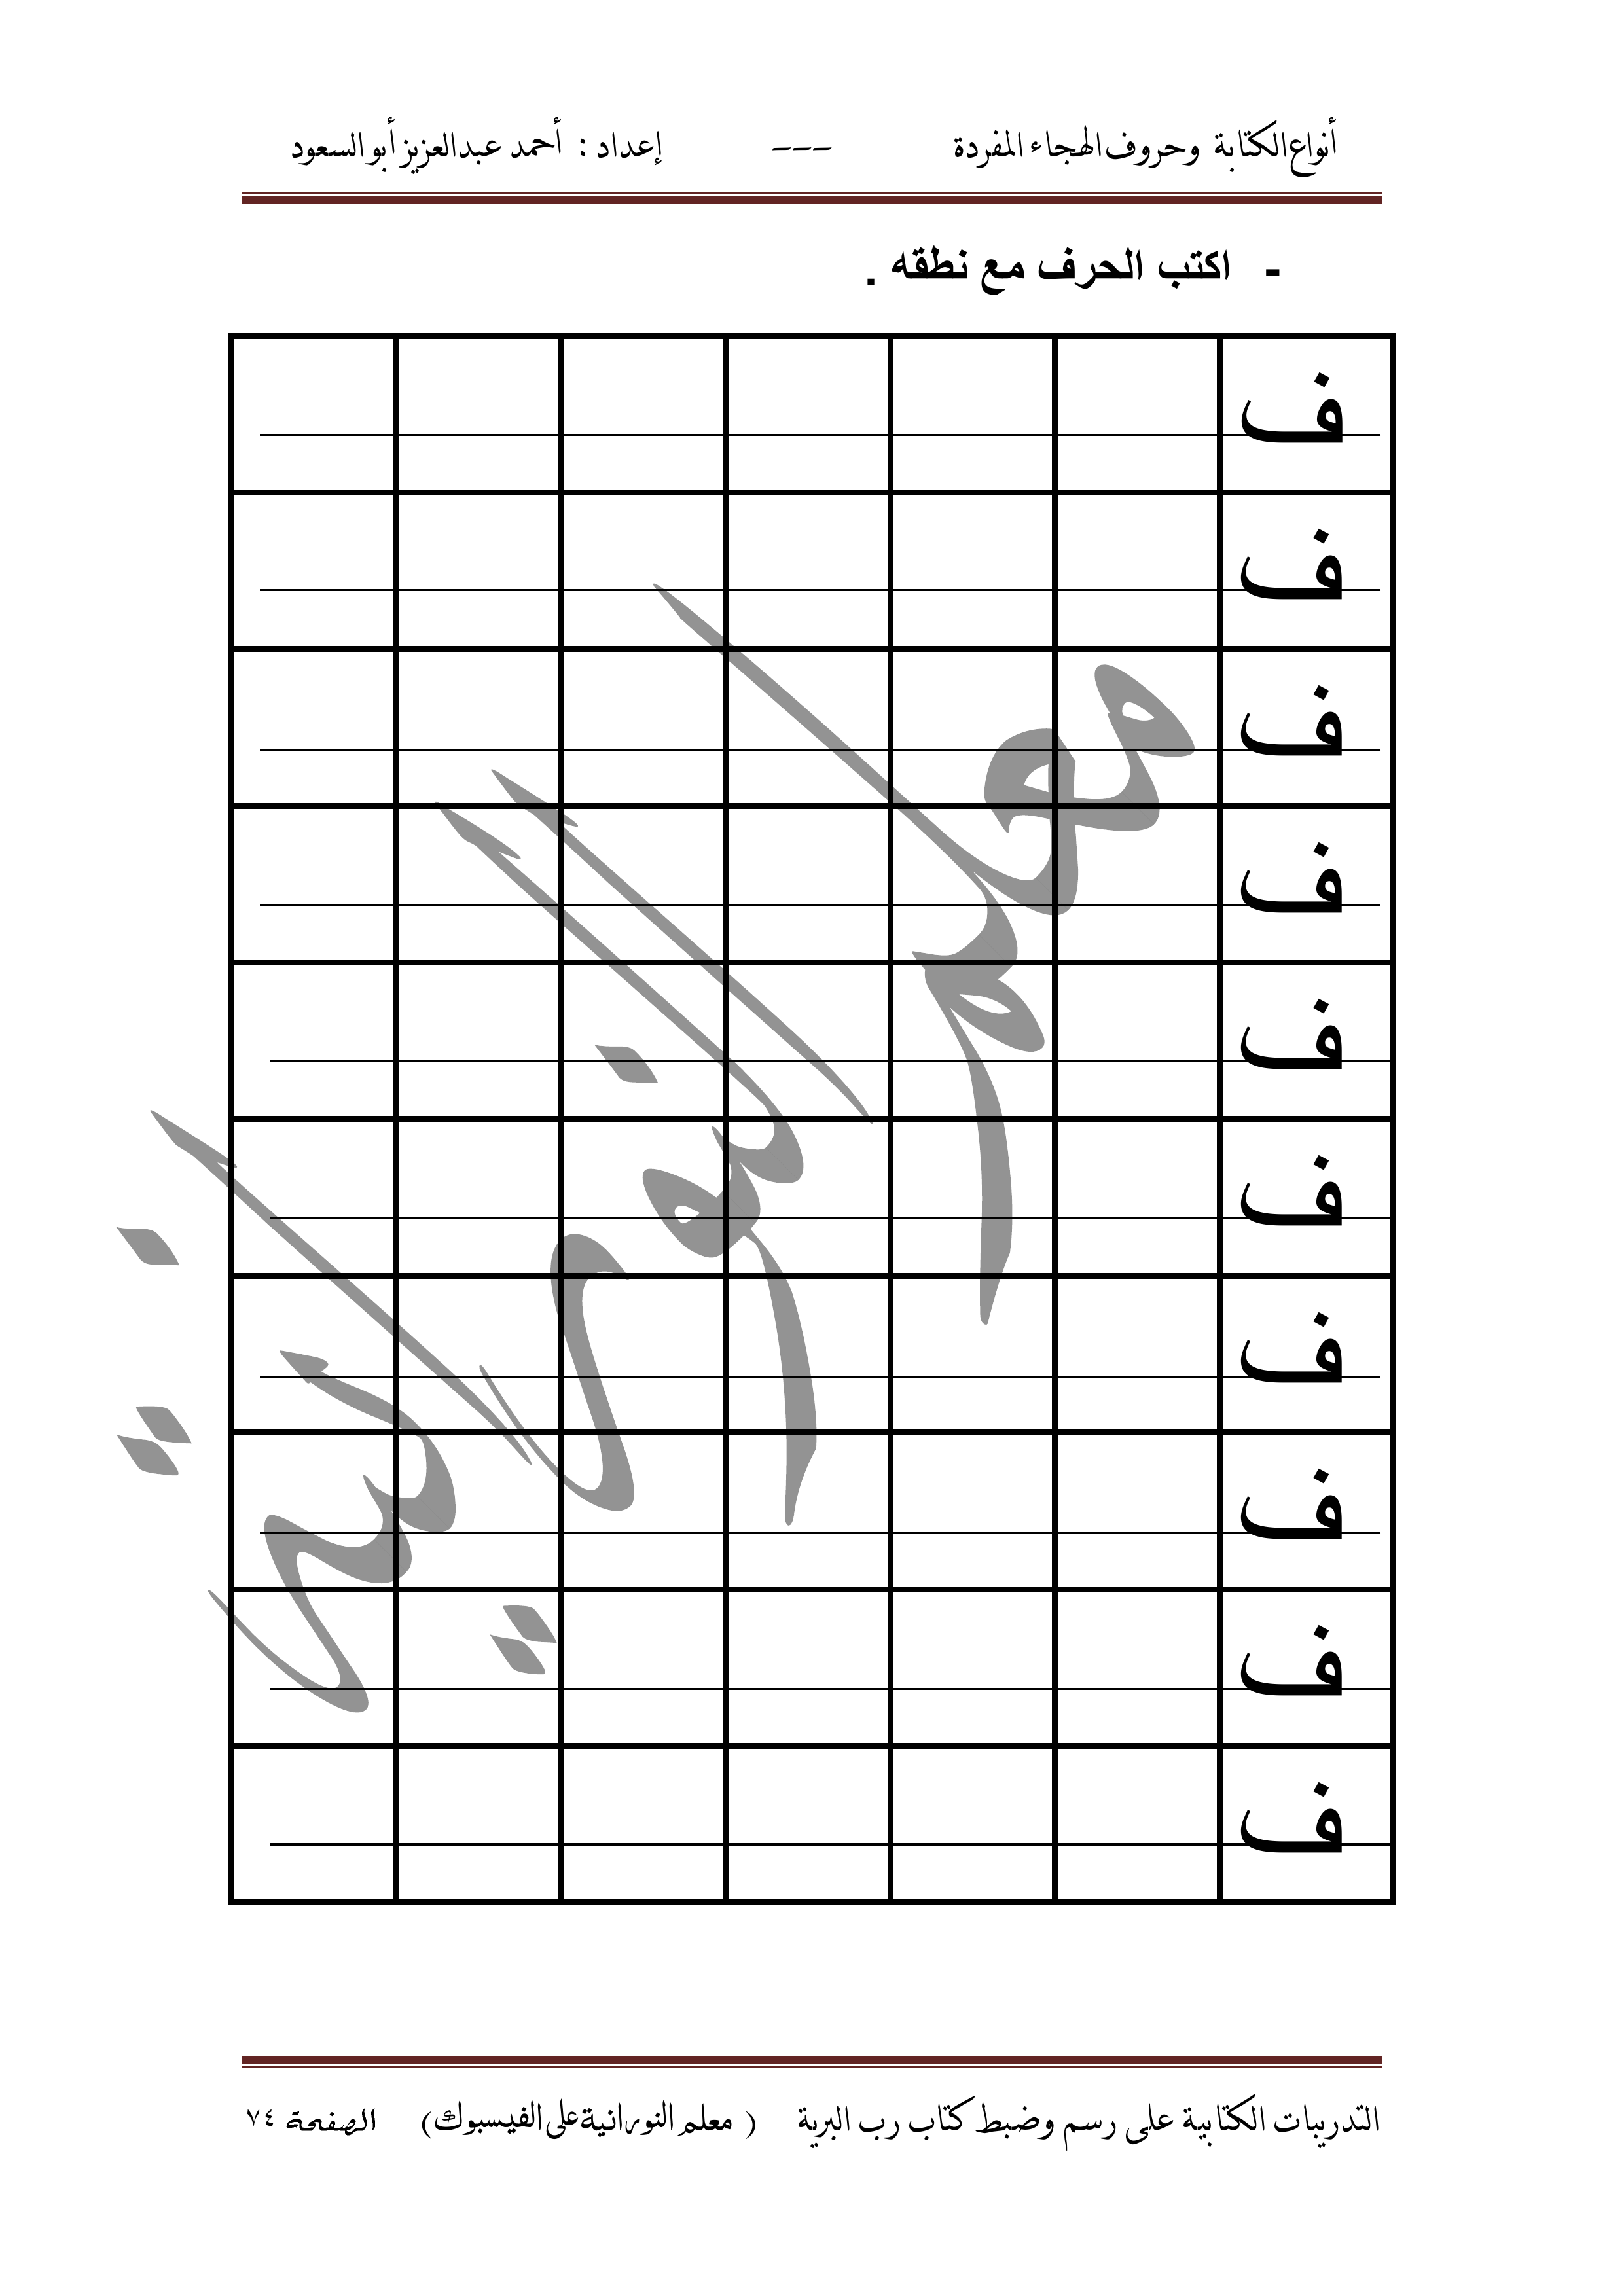 أنواع الكتابة وحروف الهجاء المفردة --- إعداد : أحمد عبدالعزيز أبو السعود
- اكتب الحرف مع نطقه .
ف
ف
ف
ف
ف
ف
ف
ف
ف
ف
معلم النورانية
التدريبات الكتابية على رسم وضبط كتاب رب البرية ( معلم النورانية على الفيسبوك) الصفحة ٧٤